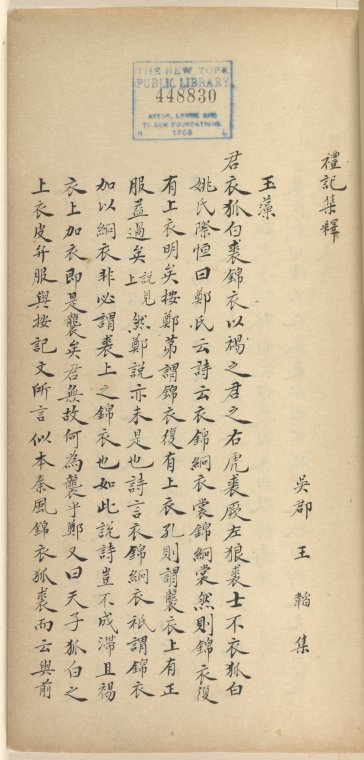 THE NEW YORK
PUBLIC LIBRARY
448830
ASTOR, LENOX AND
TILDEN FOUNDATIONS.
R L
禮記集釋
吳郡 王 韜 集
玉藻
君衣狐白裘錦衣以裼之君之右虎裘厥左狼裘士不衣狐白
姚氏際恒曰鄭氏云詩云衣錦絅衣裳錦絅裳然則錦衣復
有上衣明矣按鄭苐謂錦衣復有上衣孔則謂襲衣上有正
服益過矣說見上然鄭說亦未是也詩言衣錦絅衣祇謂錦衣
加以絅衣非必謂裘上之錦衣也如此說詩豈不成滯且裼
衣上加衣即是襲矣君無故何為襲乎鄭又曰天子狐白之
上衣皮弁服與按記文所言似本秦風錦衣狐裘而云與前